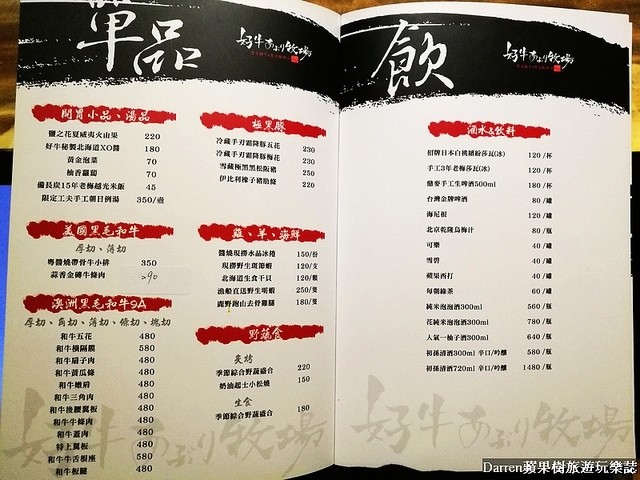 單品
好牛あぶり牧場
開胃小品、湯品
鹽之花夏威夷火山果 220
好牛秘製北海道XO醬 180
黃金泡菜 70
柚香蘿蔔 70
備長炭15年老梅越光米飯 45
限定工夫手工朝日例湯 350/壺
美國黑毛和牛
厚切、薄切
粵醬燒帶骨牛小排 350
蒜香金磚牛條肉 290
澳洲黑毛和牛9A
厚切、角切、薄切、條切、塊切
和牛五花 480
和牛橫隔膜 580
和牛扇子肉 480
和牛黃瓜條 480
和牛嫩肩 480
和牛三角肉 480
和牛後腰翼板 480
和牛牛條肉 480
和牛蓋肉 480
特上翼板 480
和牛牛舌根座 580
和牛板腱 480
極黑豚
冷藏手刃霜降豚五花 230
冷藏手刃霜降豚梅花 230
雪藏極黑黑松阪豬 250
伊比利橡子豬肋條 220
雞、羊、海鮮
醬燒現撈水晶冰捲 150/份
現撈野生斑節蝦 120/支
北海道生食干貝 120/顆
漁船直送野生明蝦 250/隻
鹿野跑山去骨雞腿 180/隻
野蔬食
炙烤
季節綜合野蔬盛合 220
奶油起士小松燒 150
生食
季節綜合野蔬盛合 180
好牛あぶり牧場
飲
好牛あぶり牧場
酒水&飲料
招牌日本白桃繽紛莎瓦(冰) 120/杯
手工3年老梅莎瓦(冰) 120/杯
鼎麥手工生啤酒500ml 180/杯
台灣金牌啤酒 80/罐
海尼根 120/罐
北京乾隆烏梅汁 80/瓶
可樂 40/罐
雪碧 40/罐
蘋果西打 40/罐
每朝綠茶 60/罐
純米泡泡酒300ml 560/瓶
花純米泡泡酒300ml 780/瓶
人氣一柚子酒300ml 640/瓶
初孫清酒300ml 辛口/吟釀 580/瓶
初孫清酒720ml 辛口/吟釀 1480/瓶
好牛あぶり牧場
Darren蘋果樹旅遊玩樂誌